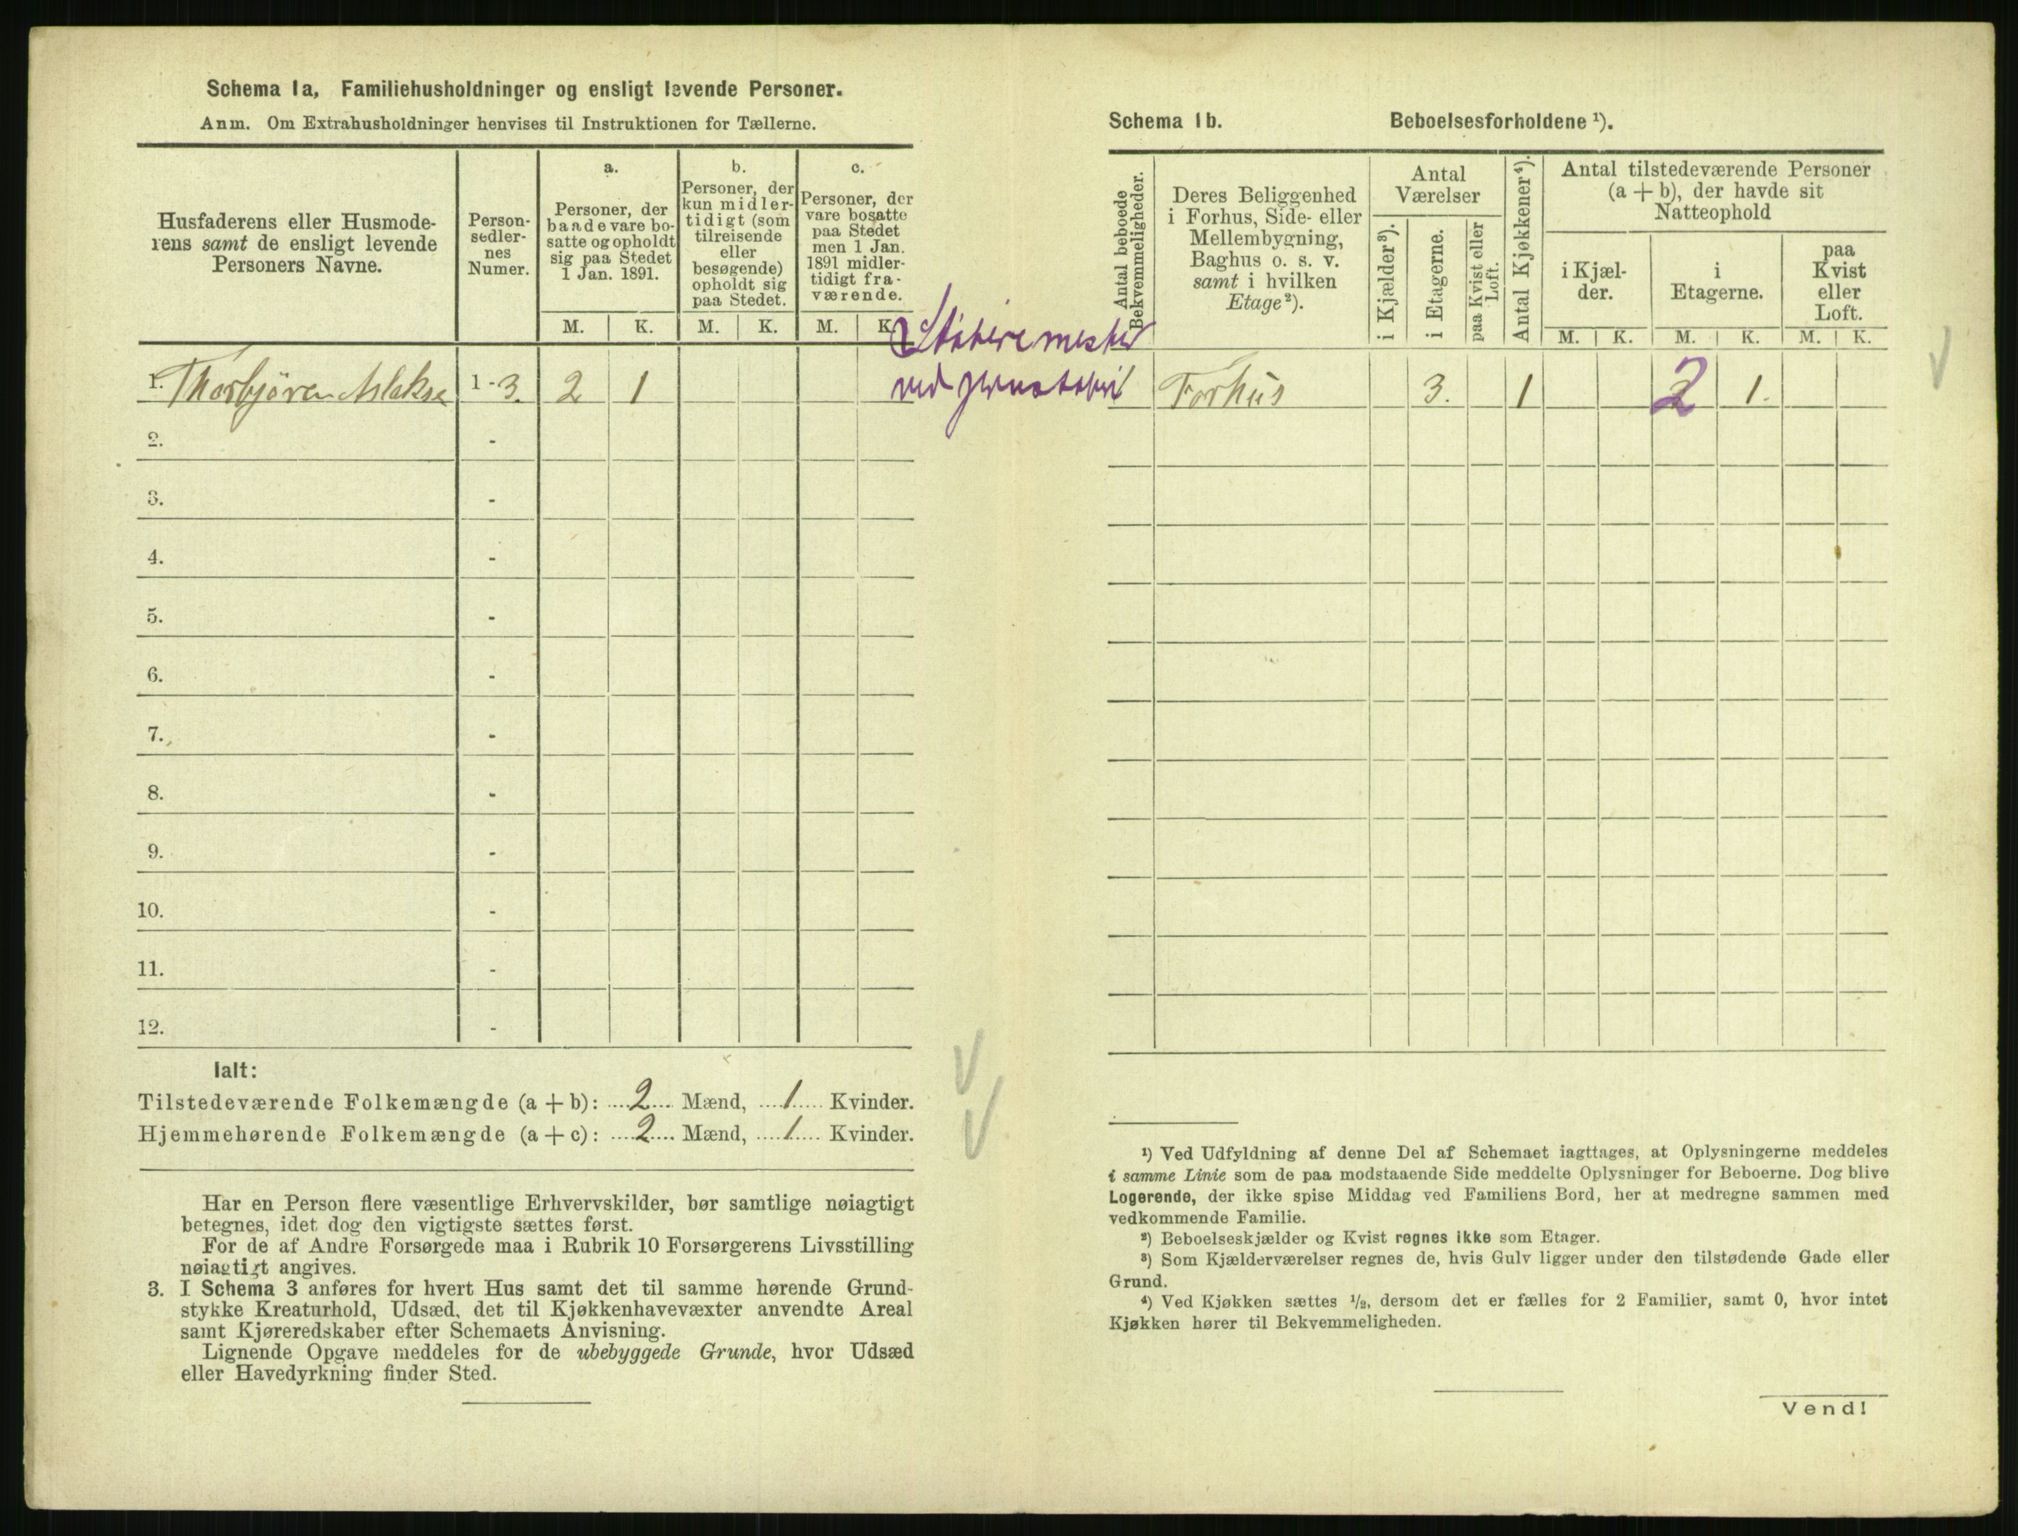 Schema 1a, Familiehusholdninger og ensligt levende Personer.
Anm. Om Extrahusholdninger henvises til Instruktionen for Tællerne.
Husfaderens eller Husmode-
rens samt de ensligt levende
Personers Navne.
Person-
sedler-
nes
Numer.
a.
Personer, der
baade vare bo-
satte og opholdt
sig paa Stedet
1 Jan. 1891.
b.
Personer, der
kun midler-
tidigt (som
tilreisende
eller
besøgende)
opholdt sig
paa Stedet.
c.
Personer, der
vare bosatte
paa Stedet
men 1 Jan.
1891 midler-
tidigt fra-
værende.
M. K. M. K. M. K.
1. Thorbjören Aslaksen 1-3. 2 1
Støberemester
ved
2. -
3. -
4. -
5. -
6. -
7. -
8. -
9. -
10. -
11. -
12. -
Ialt:
Tilstedeværende Folkemængde (a + b): 2 Mænd, 1 Kvinder.
Hjemmehørende Folkemængde (a + c): 2 Mænd, 1 Kvinder.
Har en Person flere væsentlige Erhvervskilder, bør samtlige nøiagtigt
betegnes, idet dog den vigtigste sættes først.
For de af Andre Forsørgede maa i Rubrik 10 Forsørgerens Livsstilling
nøiagtigt angives.
3. I Schema 3 anføres for hvert Hus samt det til samme hørende Grund-
stykke Kreaturhold, Udsæd, det til Kjøkkenhavevæxter anvendte Areal
samt Kjøreredskaber efter Schemaets Anvisning.
Lignende Opgave meddeles for de ubebyggede Grunde, hvor Udsæd
eller Havedyrkning finder Sted.
Schema 1b. Beboelsesforholdene ¹).
Antal beboede
Bekvemmeligheder.
Deres Beliggenhed
i Forhus, Side- eller
Mellembygning,
Baghus o. s. v.
samt i hvilken
Etage ²).
Antal
Værelser
i Kjælder ³).
i Etagerne.
paa Kvist eller
Loft.
Antal Kjøkkener ⁴).
Antal tilstedeværende Personer
(a + b), der havde sit
Natteophold
i Kjæl-
der.
i
Etagerne.
paa
Kvist
eller
Loft.
M. K. M. K. M. K.
Forhus 3. 1 2 1.
¹) Ved Udfyldning af denne Del af Schemaet iagttages, at Oplysningerne meddeles
i samme Linie som de paa modstaaende Side meddelte Oplysninger for Beboerne. Dog blive
Logerende, der ikke spise Middag ved Familiens Bord, her at medregne sammen med
vedkommende Familie.
²) Beboelseskjælder og Kvist regnes ikke som Etager.
³) Som Kjælderværelser regnes de, hvis Gulv ligger under den tilstødende Gade eller
Grund.
⁴) Ved Kjøkken sættes ½, dersom det er fælles for 2 Familier, samt 0, hvor intet
Kjøkken hører til Bekvemmeligheden.
Vend!